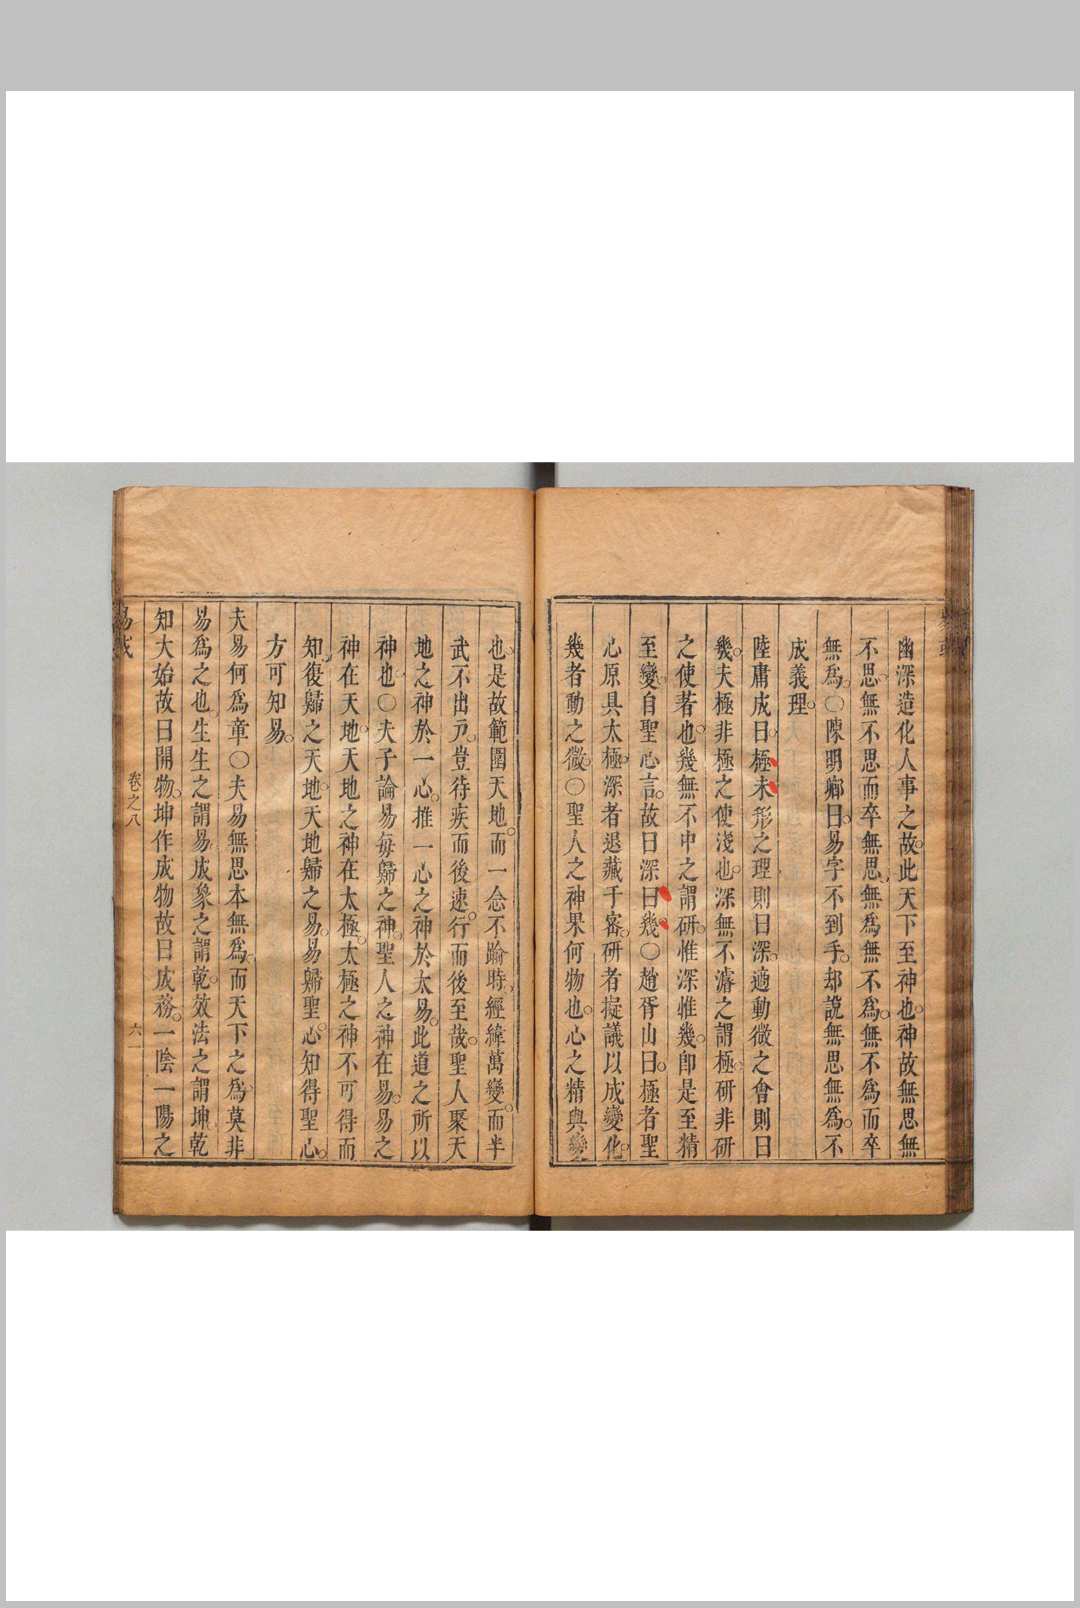 幽深造化人事之故此天下至神也神故無思無
不思無不思而卒無思無爲無不爲無不爲而卒
無爲○陳明卿曰易字不到手却說無思無爲不
成義理
陸庸成曰極未形之理則曰深適動微之會則曰
幾夫極非極之使淺也深無不濬之謂極研非研
之使著也幾無不中之謂研惟深惟幾卽是至精
至變自聖心言故曰深曰幾○趙胥山曰極者聖
心原具太極深者退藏于密研者擬議以成變化
幾者動之微○聖人之神果何物也心之精與變
也是故範圍天地而一念不踰時經緯萬變而半
武不出戶豈待疾而後速行而後至哉聖人聚天
地之神於一心推一心之神於太易此道之所以
神也○夫子論易每歸之神聖人之神在易易之
神在天地天地之神在太極太極之神不可得而
知復歸之天地天地歸之易易歸聖心知得聖心
方可知易
夫易何爲章○夫易無思本無爲而天下之爲莫非
易爲之也生生之謂易成象之謂乾效法之謂坤乾
知大始故曰開物坤作成物故曰成務一陰一陽之
卷之八
六一